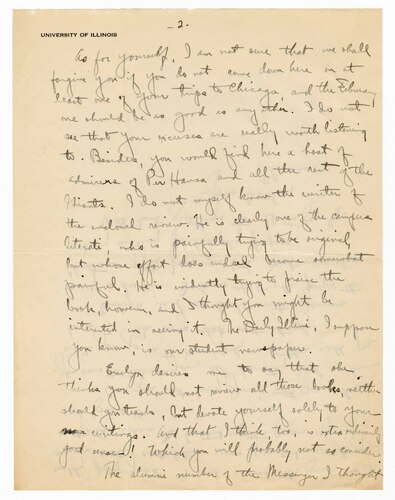 -2-
UNIVERSITY OF ILLINOIS
As for yourself, I am not sure that we shall
forgive you if you do not come down here on at
least one of your trips to Chicago, and the February
one should be as good as any other. I do not
see that your excuses are really worth listening
to. Besides, you would find here a host of
admirers of Per Hansa and all the rest of the
Giants. I do not myself know the writer of
the enclosed review. He is clearly one of the campus
literati, who is painfully trying to be original
but whose effort does indeed become somewhat
painful. He is evidently trying to praise the
book, however, and I thought you might be
interested in seeing it. The Daily Illini, I suppose
you know, is our student newspaper.
Evelyn desires me to say that she
thinks you should not review all those books, neither
should you teach, but devote yourself solely to your
writings. And that I think too, is extraordinarily
good sense-! Which you will probably not so consider.
The alumni number of the Messenger I thought